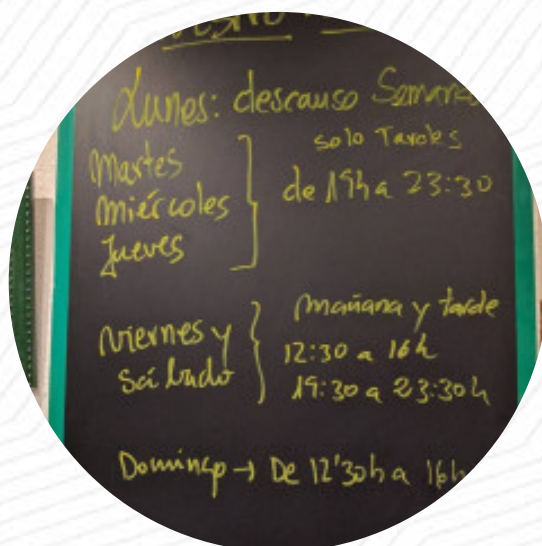 Lunes: descanso
Martes
Miércoles
Jueves
solo Tardes
de 19h a 23:30
Viernes y
Sábado
mañana y tarde
12:30 a 16h
19:30 a 23:30h
Domingo → De 12'30h a 16h